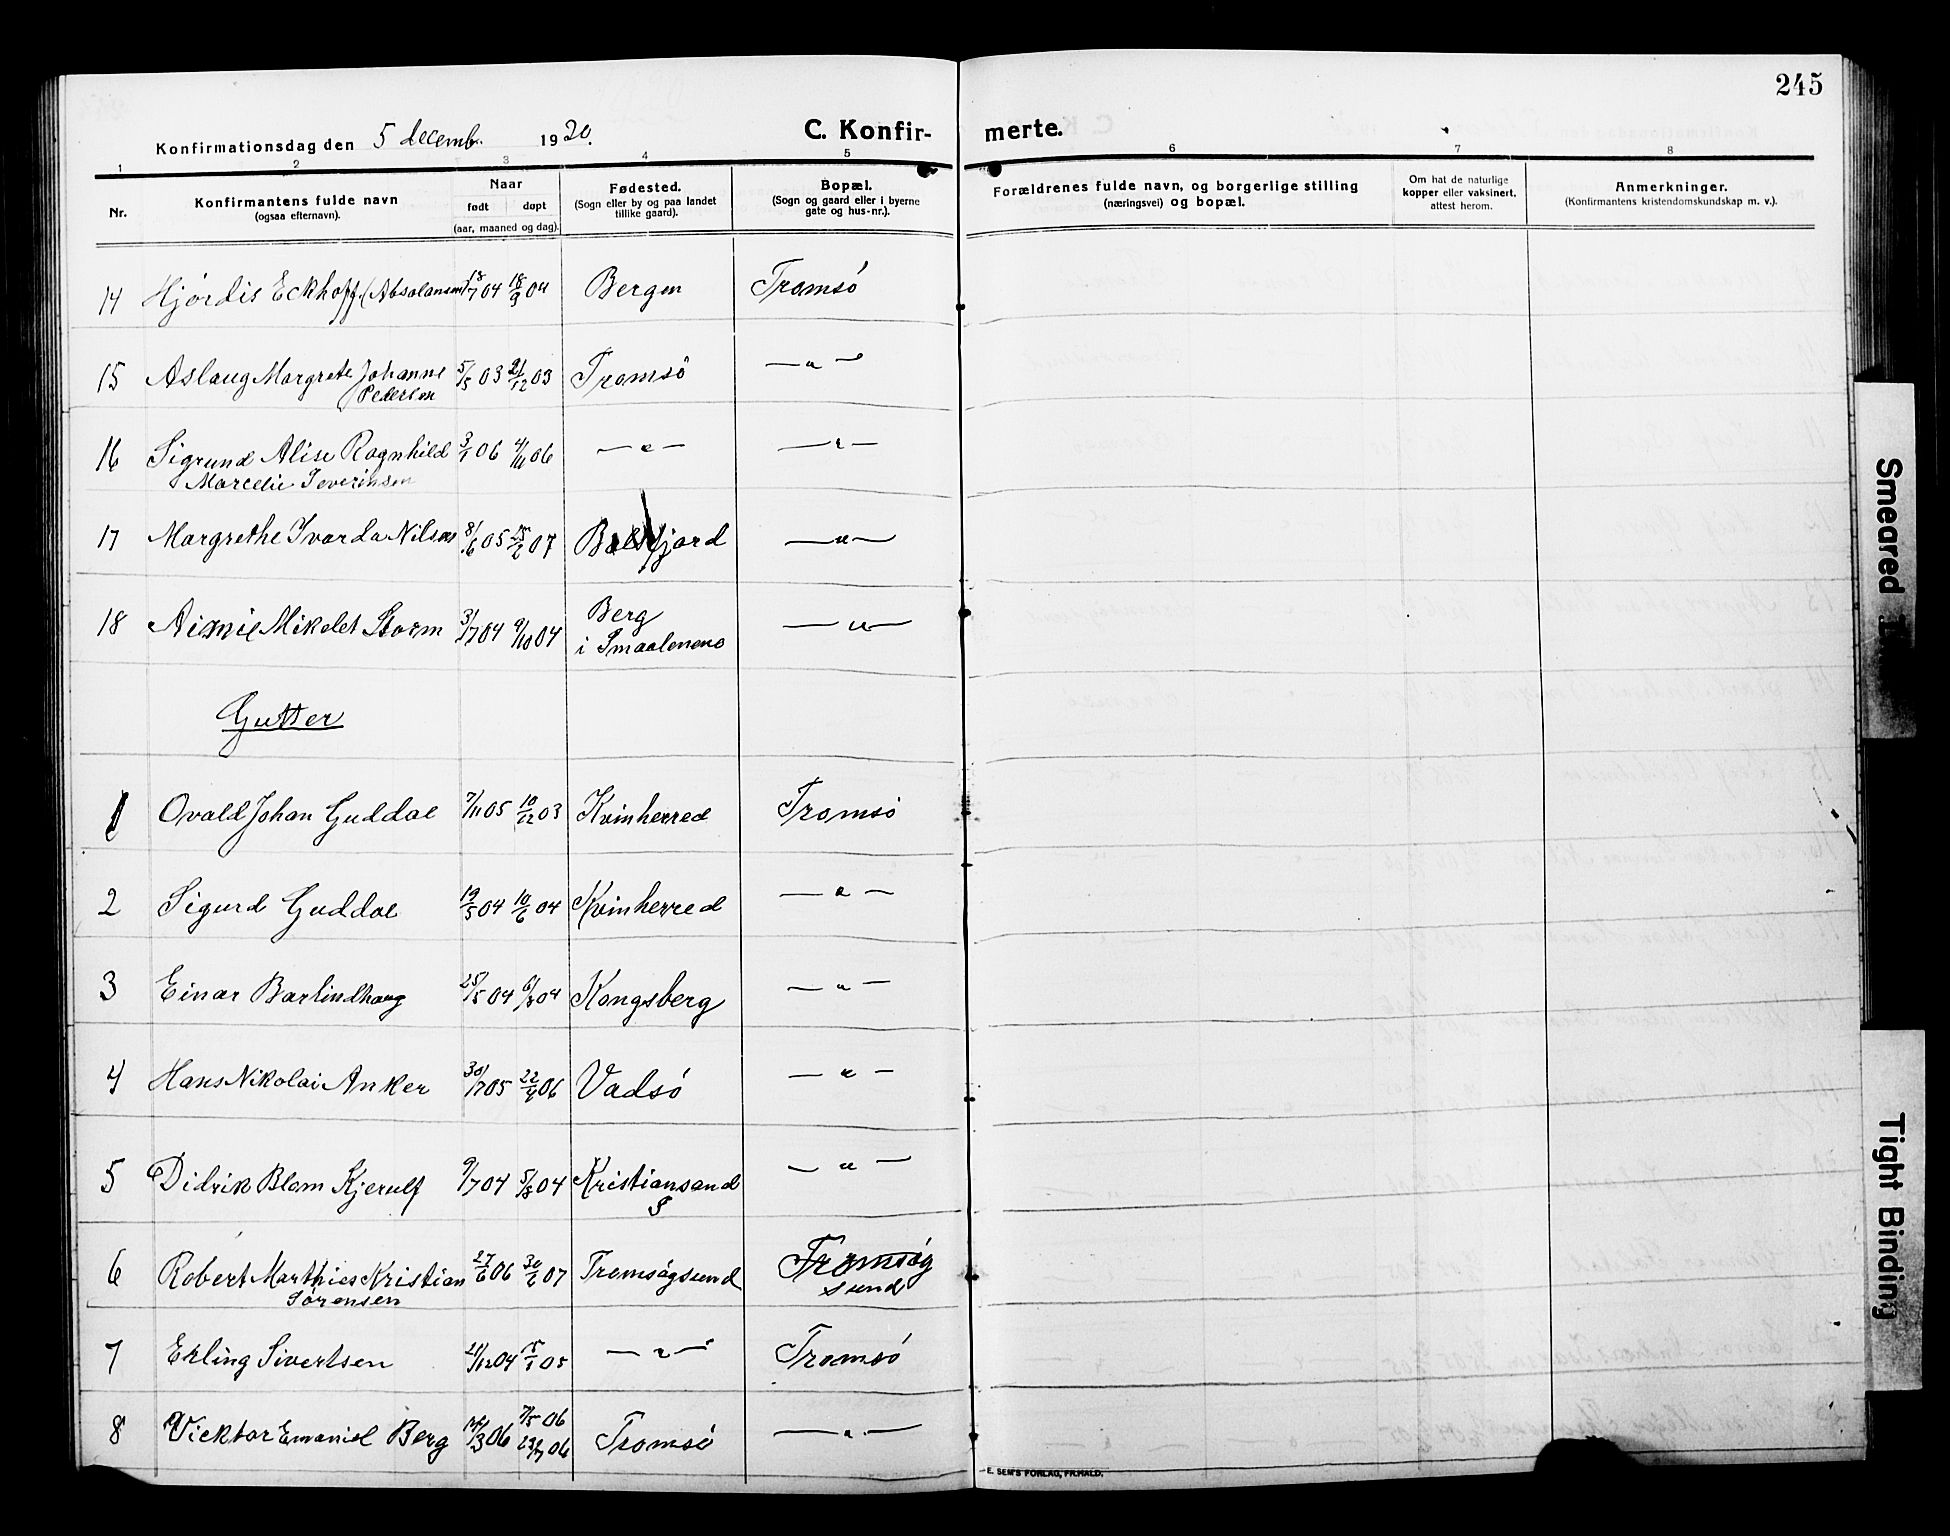 245
Konfirmationsdag den 5 decemb. 1920.
C. Konfir- merte.
1 2 3 4 5 6 7 8
Nr.
Konfirmantens fulde navn
(ogsaa efternavn).
Naar
født døpt
(aar, maaned og dag).
Fødested.
(Sogn eller by og paa landet
tillike gaard).
Bopæl.
(Sogn og gaard eller i byerne
gate og hus-nr.).
Forældrenes fulde navn, og borgerlige stilling
(næringsvei) og bopæl.
Om hat de naturlige
kopper eller vaksinert,
attest herom.
Anmerkninger.
(Konfirmantens kristendomskundskap m. v.).
14 Hjördis Eckhoff (Absolansen) 18/7 04 18/9 04 Bergen Tromsö
15 Aslaug Margrete Johanne 5/5 03 21/12 03 Tromsö — " —
Pedersen
16 Sigrund Alise Ragnhild 3/1 06 4/11 06 — " — — " —
Marcelie Severinsen
17 Margrethe Ivarda Nilsen 8/6 05 07 Balsfjord — " —
18 Mikelet Storm 31/7 04 9/10 04 Berg — " —
i Smaalenene
Gutter
1 Ovald Johan Guddal 7/11 05 10/12 03 Kvinherred Tromsö
2 Sigurd Guddal 19/5 04 10/6 04 Kvinherred — " —
3 Einar Barlindhaug 25/5 04 04 Kongsberg — " —
4 Hans Nikolai Anker 30/7 05 22/4 06 Vadsö — " —
5 Didrik Blom Kjerulf 9/7 04 5/8 04 Kristiansand — " —
S
6 Robert Marthies Kristian 27/6 06 30/6 07 Tromsögsund Tromsög
Sörensen sund
7 Erling Sivertsen 21/12 04 15/1 05 — " — Tromsö
8 Vicktor Emaniel Berg 06 7/5 06 Tromsö — " —
23/7 06
E. SEM'S FORLAG, FR.HALD.
Smeared
Tight Binding